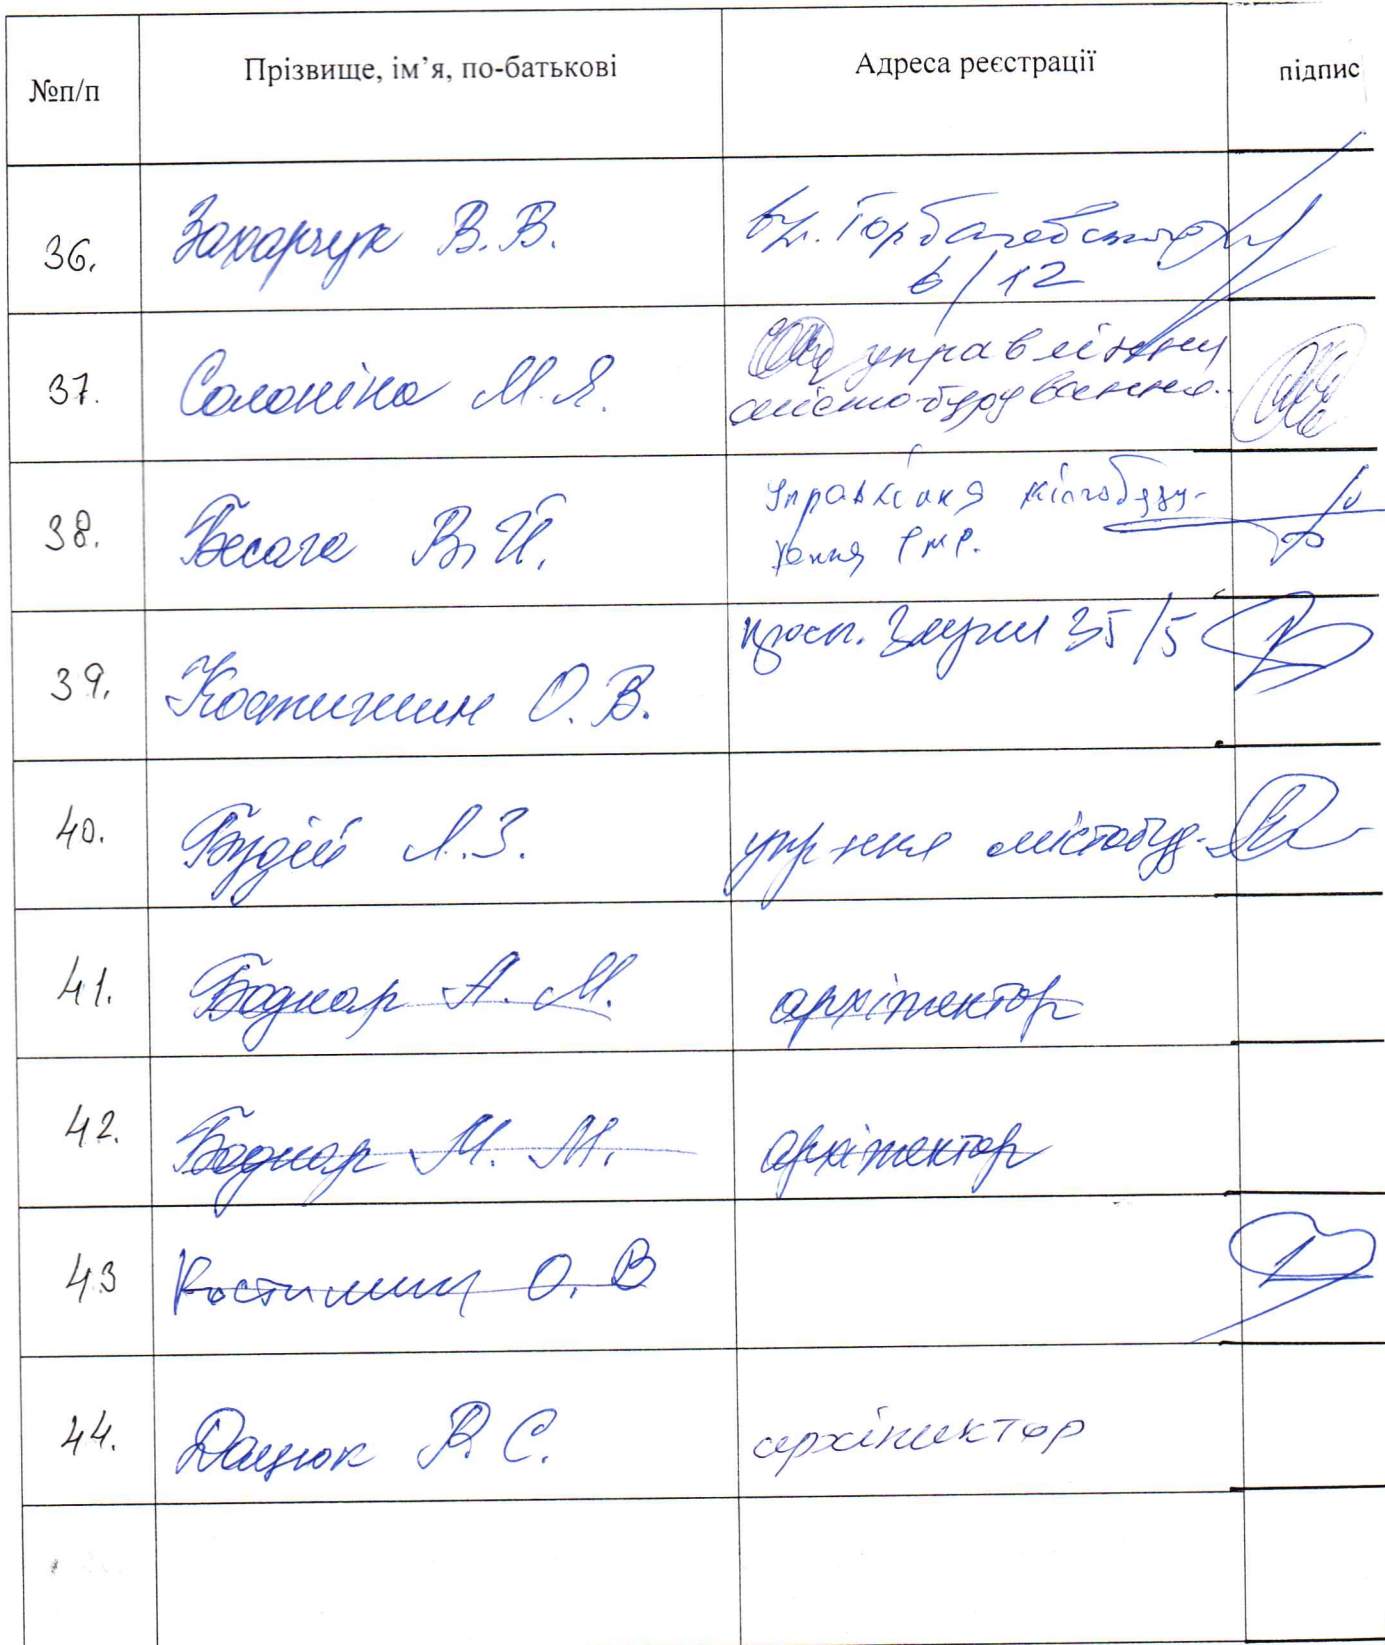 №п/п
Прізвище, ім’я, по-батькові
Адреса реєстрації
підпис
36.
Захарчук В.В.
вул. Горбачевського
6/12
37.
Солоніна М.Я.
управління
містобудування.
38.
Бесага В.Й.
Управління містобуду-
вання РМР.
39.
Костишин О.В.
просп. Злуки 35/5
40.
Будій Л.З.
упр-ння містобуд.
41.
Боднар А.М.
архітектор
42.
Боднар М.М.
архітектор
43
Костишин О.В
44.
Дацюк В.С.
архітектор